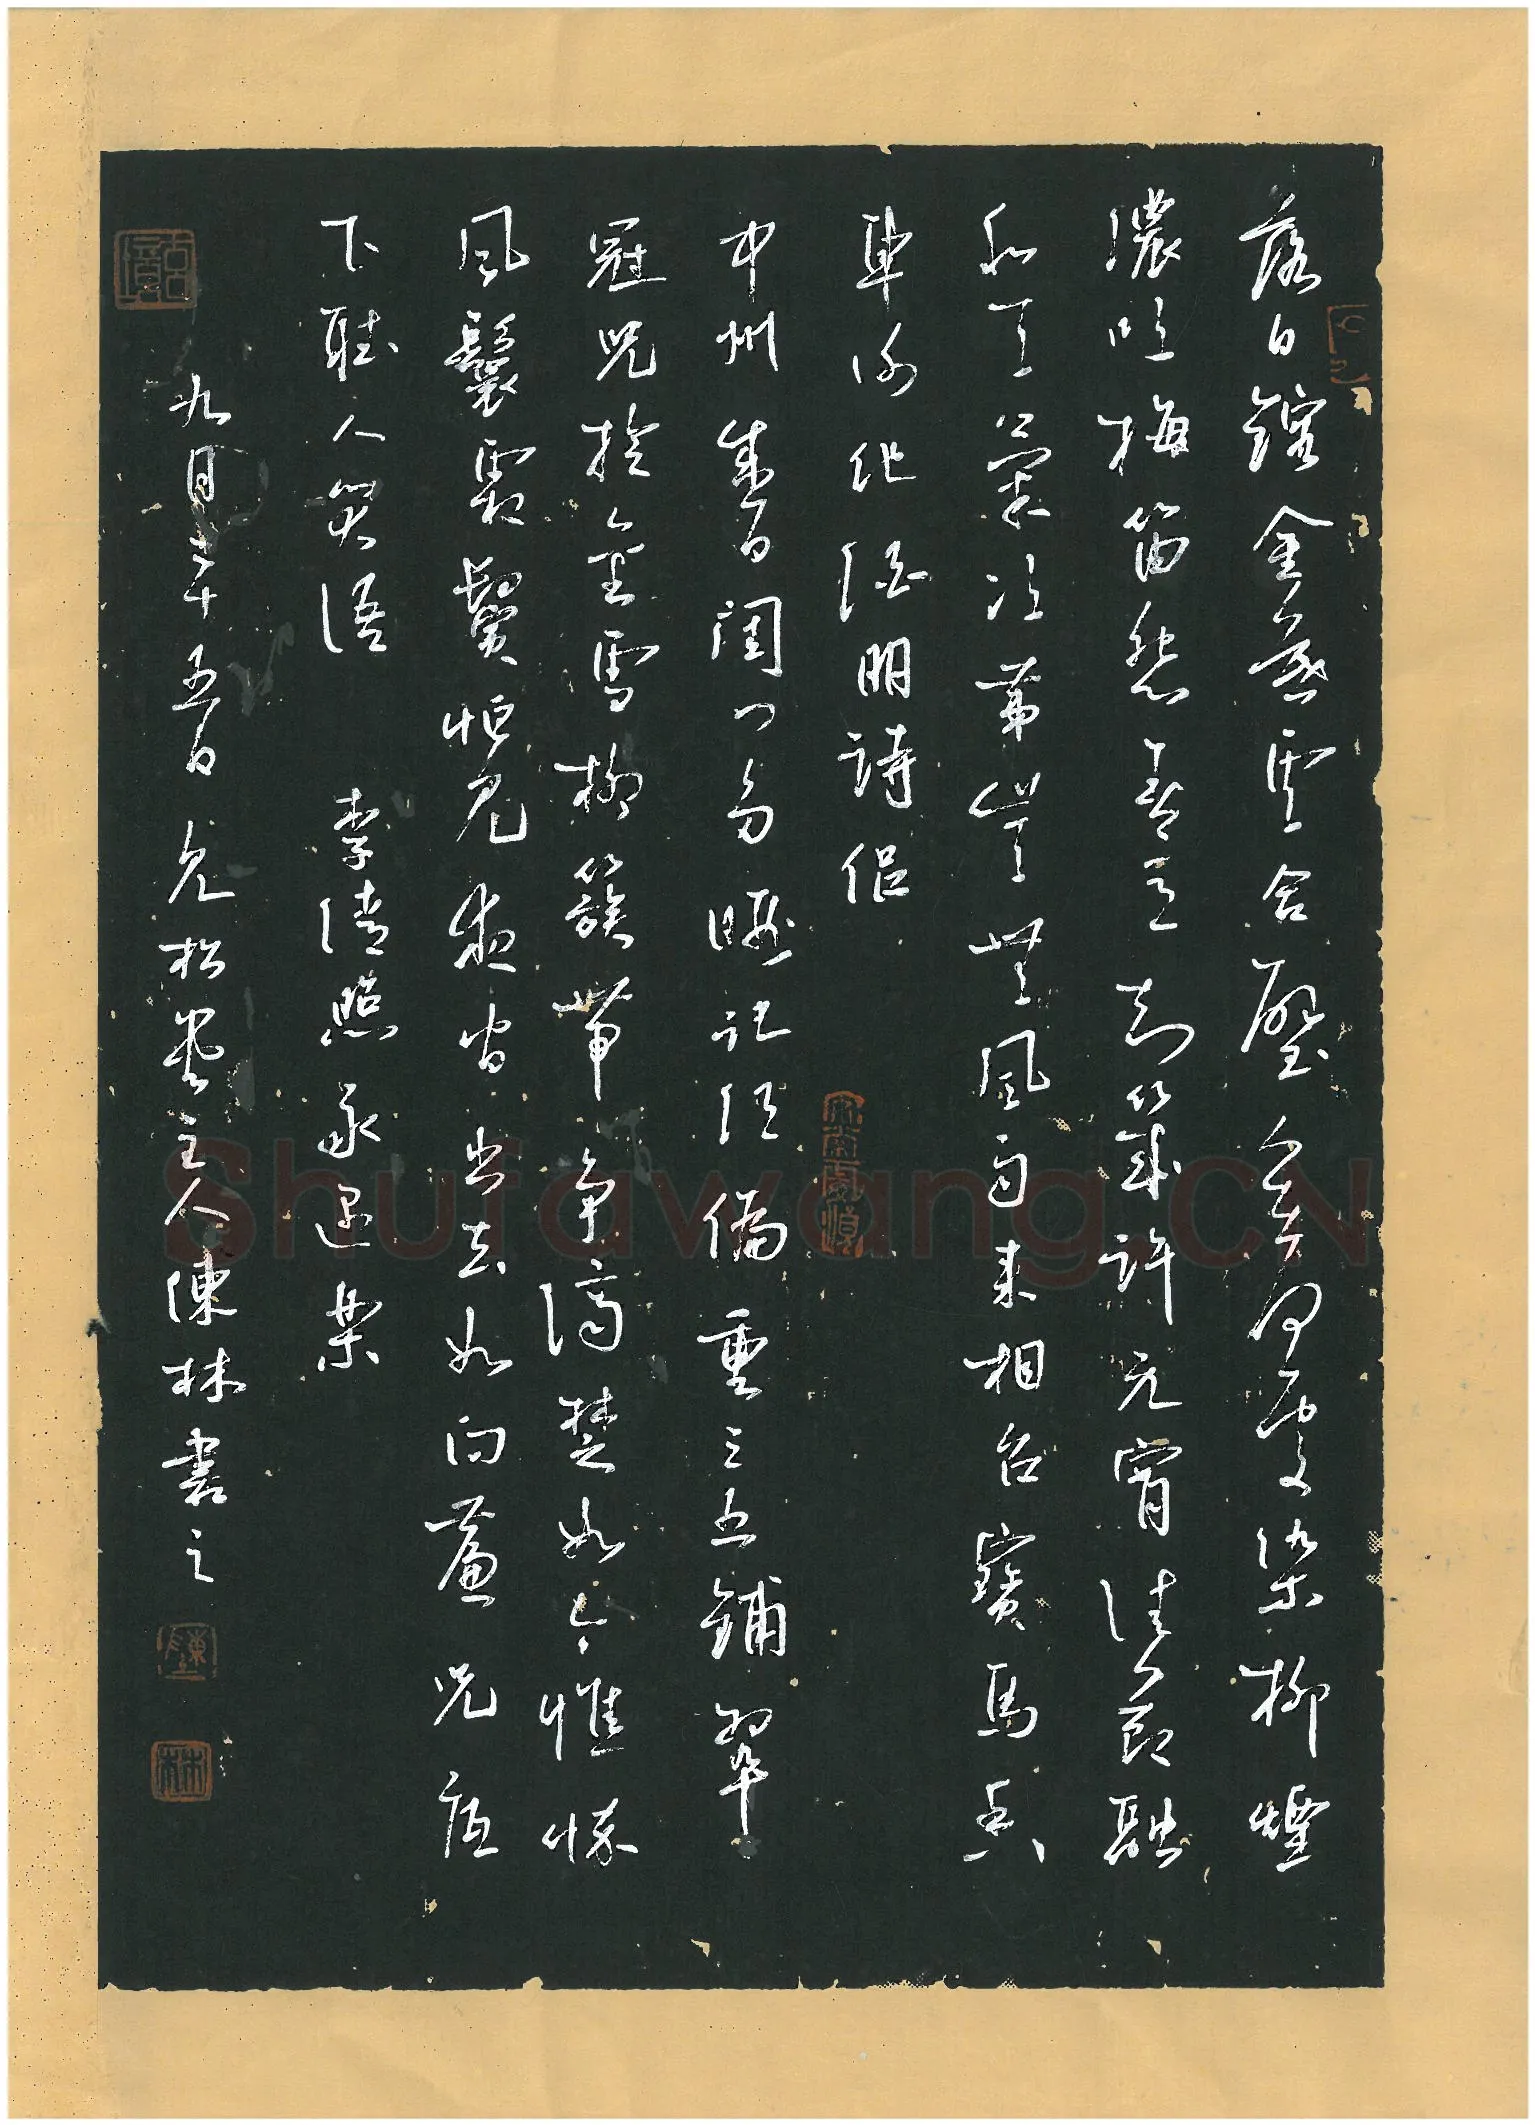 落日鎔金暮雲合璧人在何處染柳煙
濃吹梅笛怨春意知幾許元宵佳節融
和天氣次第豈無風雨來相召寶馬香
車謝他酒朋詩侶
中州盛日閨門多暇記得偏重三五鋪翠
冠兒撚金雪柳簇帶爭濟楚如今憔悴
風鬟霜鬢怕見夜間出去如向簾兒底
下聽人笑語 李清照永遇樂
九月二十五日 松主人陳林書之
林
Shufawang.CN